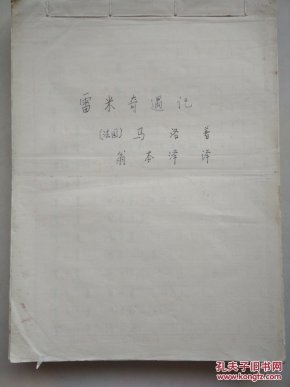 雷米奇遇记
(法国) 马洛 著
翁本泽 译
孔夫子旧书网